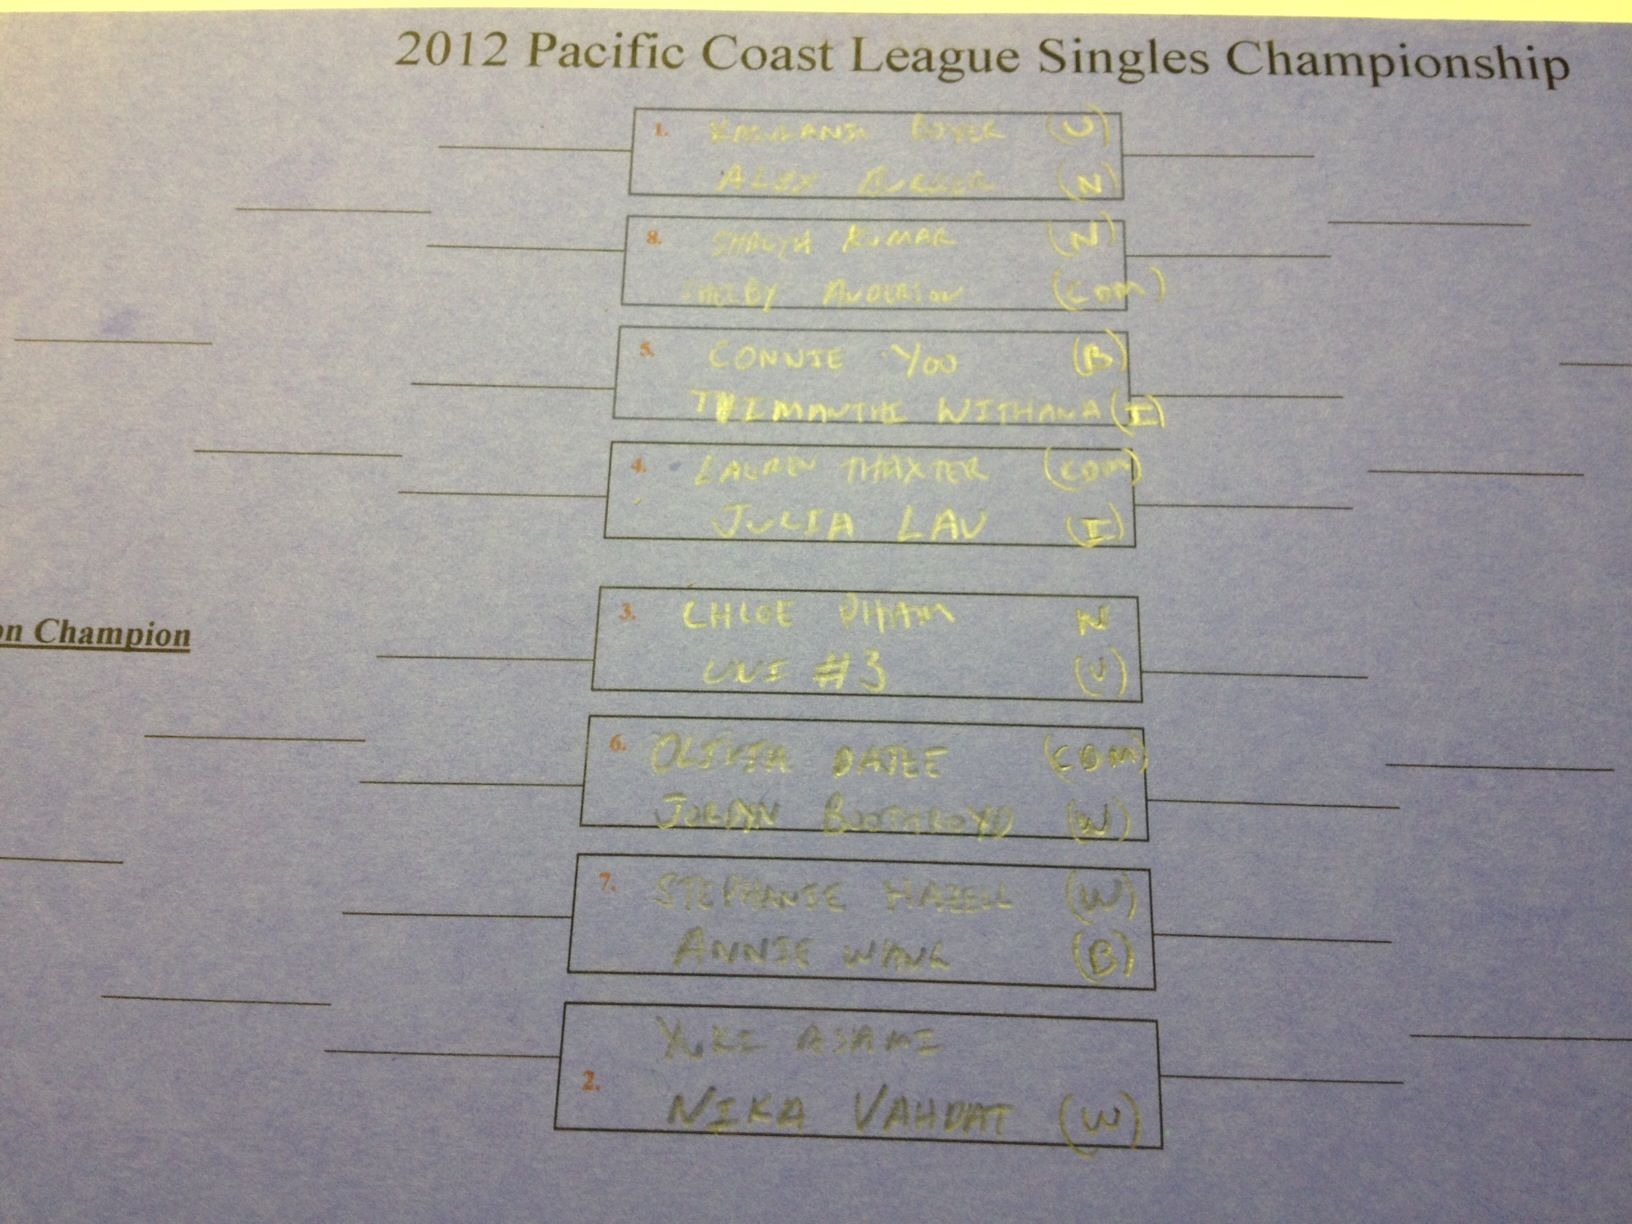 2012 Pacific Coast League Singles Championship
1. BOYER (U)
ALEX (N)
8. KUMAR (N)
SHELBY ANDERSON (CDM)
5. CONNIE YOO (B)
WITHANA (I)
4. LAUREN THAXTER (CDM)
JULIA LAU (I)
3. CHLOE PHAM N
UNI #3 (U)
on Champion
6. OLIVIA (CDM)
JORDYN BOOTHROYD (W)
7. STEPHANIE HAZELL (W)
ANNIE WANG (B)
YUKI ASAMI
2. NIKA VAHDAT (W)